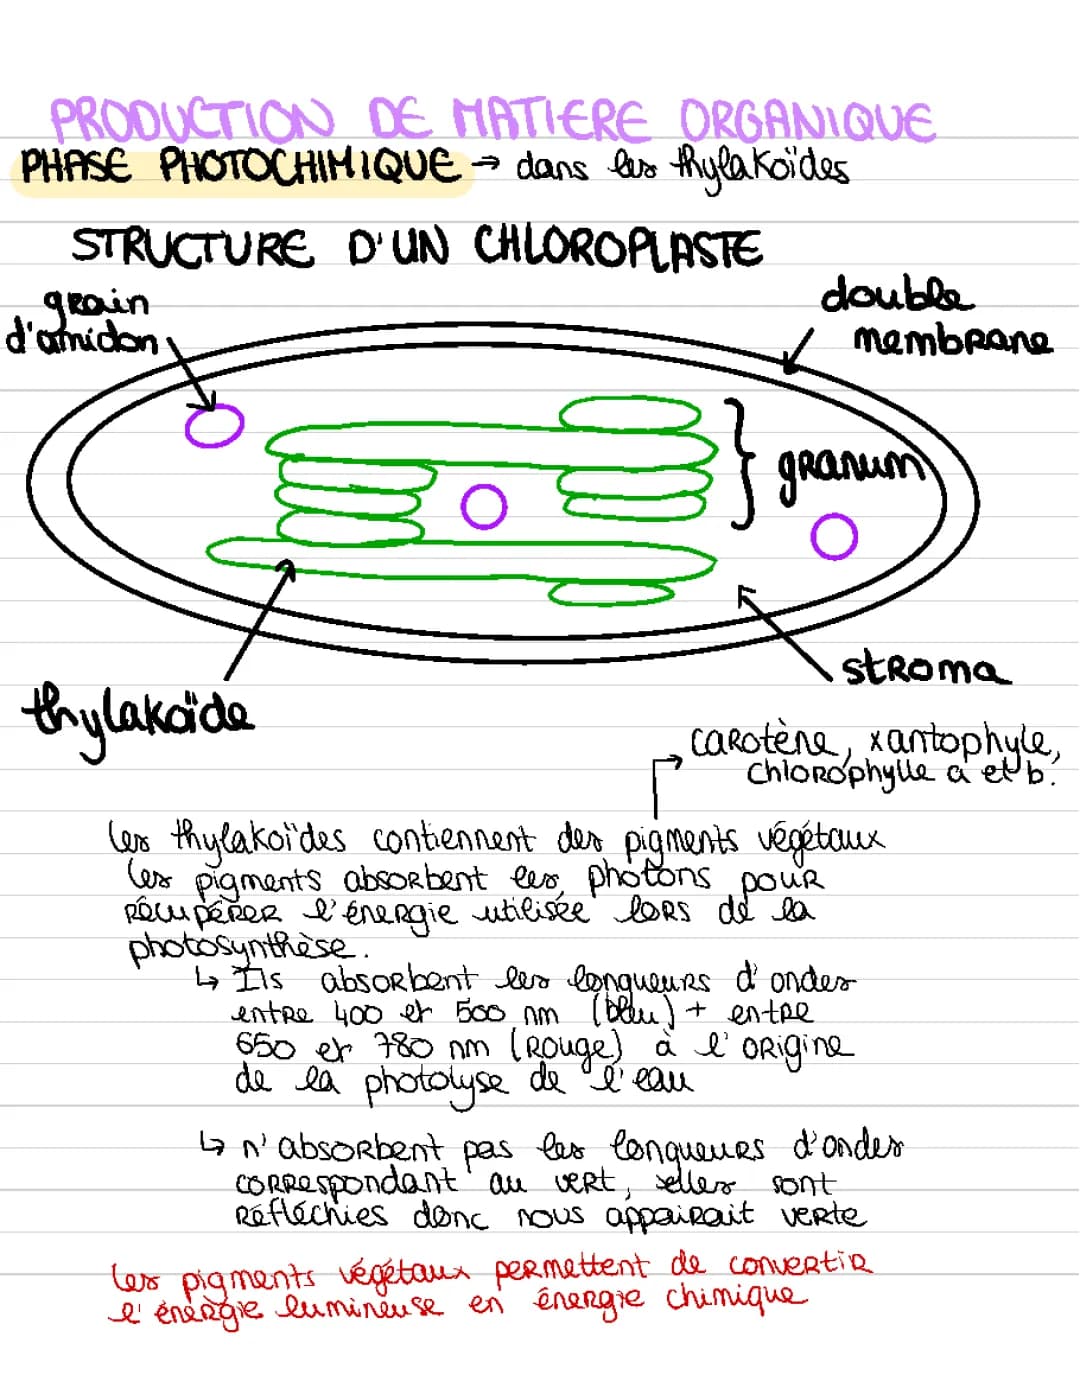 PRODUCTION DE MATIERE ORGANIQUE
PHASE PHOTOCHIMIQUE → dans les thylakoïdes
STRUCTURE D'UN CHLOROPLASTE
grain
d'amidon
double
membrane
granum
stroma
thylakoïde
carotène, xantophyle,
chlorophylle a et b.
les thylakoïdes contiennent des pigments végétaux
les pigments absorbent les photons pour
récupérer l'énergie utilisée lors de la
photosynthèse.
↳ Ils absorbent les longueurs d'ondes
entre 400 et 500 nm (bleu) + entre
650 et 780 nm (rouge) à l'origine
de la photolyse de l'eau
↳ n'absorbent pas les longueurs d'ondes
correspondant au vert, elles sont
réfléchies donc nous appairait verte
les pigments végétaux permettent de convertir
l'énergie lumineuse en énergie chimique